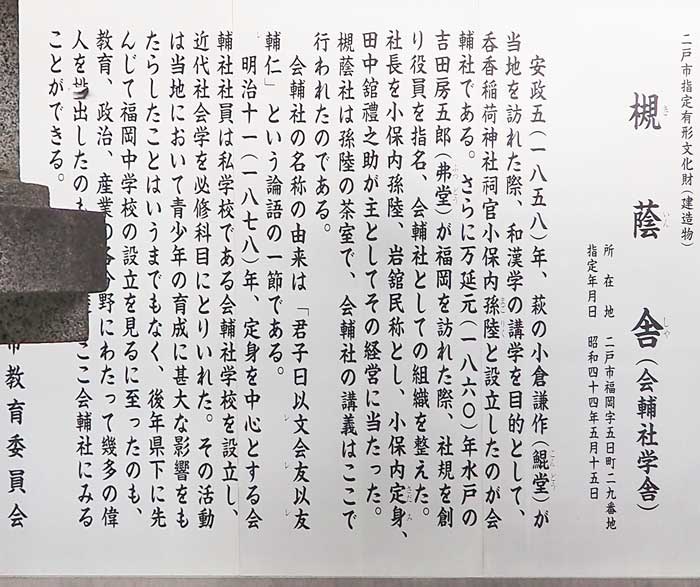 二戸市指定有形文化財(建造物)
槻蔭舎(会輔社学舎)
きいんしゃ
所在地 二戸市福岡字五日町二九番地
指定年月日 昭和四十四年五月十五日
安政五(一八五八)年、萩の小倉謙作(鯤堂)が
こんどう
当地を訪れた際、和漢学の講学を目的として、
呑香稲荷神社祠官小保内孫陸と設立したのが会
輔社である。さらに万延元(一八六〇)年水戸の
吉田房五郎(弗堂)が福岡を訪れた際、社規を創
り役員を指名、会輔社としての組織を整えた。
社長を小保内孫陸、岩舘民称とし、小保内定身、
田中舘禮之助が主としてその経営に当たった。
槻蔭社は孫陸の茶室で、会輔社の講義はここで
行われたのである。
会輔社の名称の由来は「君子曰以文会友以友
輔仁」という論語の一節である。
明治十一(一八七八)年、定身を中心とする会
輔社社員は私学校である会輔社学校を設立し、
近代社会学を必修科目にとりいれた。その活動
は当地において青少年の育成に甚大な影響をも
たらしたことはいうまでもなく、後年県下に先
んじて福岡中学校の設立を見るに至ったのも、
教育、政治、産業の各分野にわたって幾多の偉
人を出したのも ここ会輔社にみる
ことができる。
市教育委員会